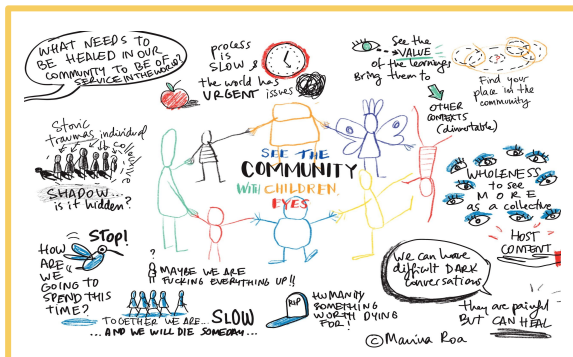 WHAT NEEDS TO
BE HEALED IN OUR
COMMUNITY TO BE OF
SERVICE IN THE WORLD?
process
is
SLOW &
the world has
URGENT issues
See the
VALUE
of the learnings
Bring them to
OTHER
CONTEXTS
Find your
place in the
community
Storic
traumas individual
collective
SHADOW...
is it hidden?
SEE THE
COMMUNITY
WITH CHILDREN
EYES
WHOLENESS
to see
MORE
as a collective
HOST
CONTENT
STOP!
HOW
ARE
WE
GOING TO
SPEND THIS
TIME?
?
MAYBE WE ARE
FUCKING EVERYTHING UP!!
TOGETHER WE ARE... SLOW
... AND WE WILL DIE SOMEDAY...
RIP
HUMANITY
SOMETHING
WORTH DYING
FOR!
We can have
difficult DARK
conversations
they are painful
BUT CAN HEAL
© Marina Roa